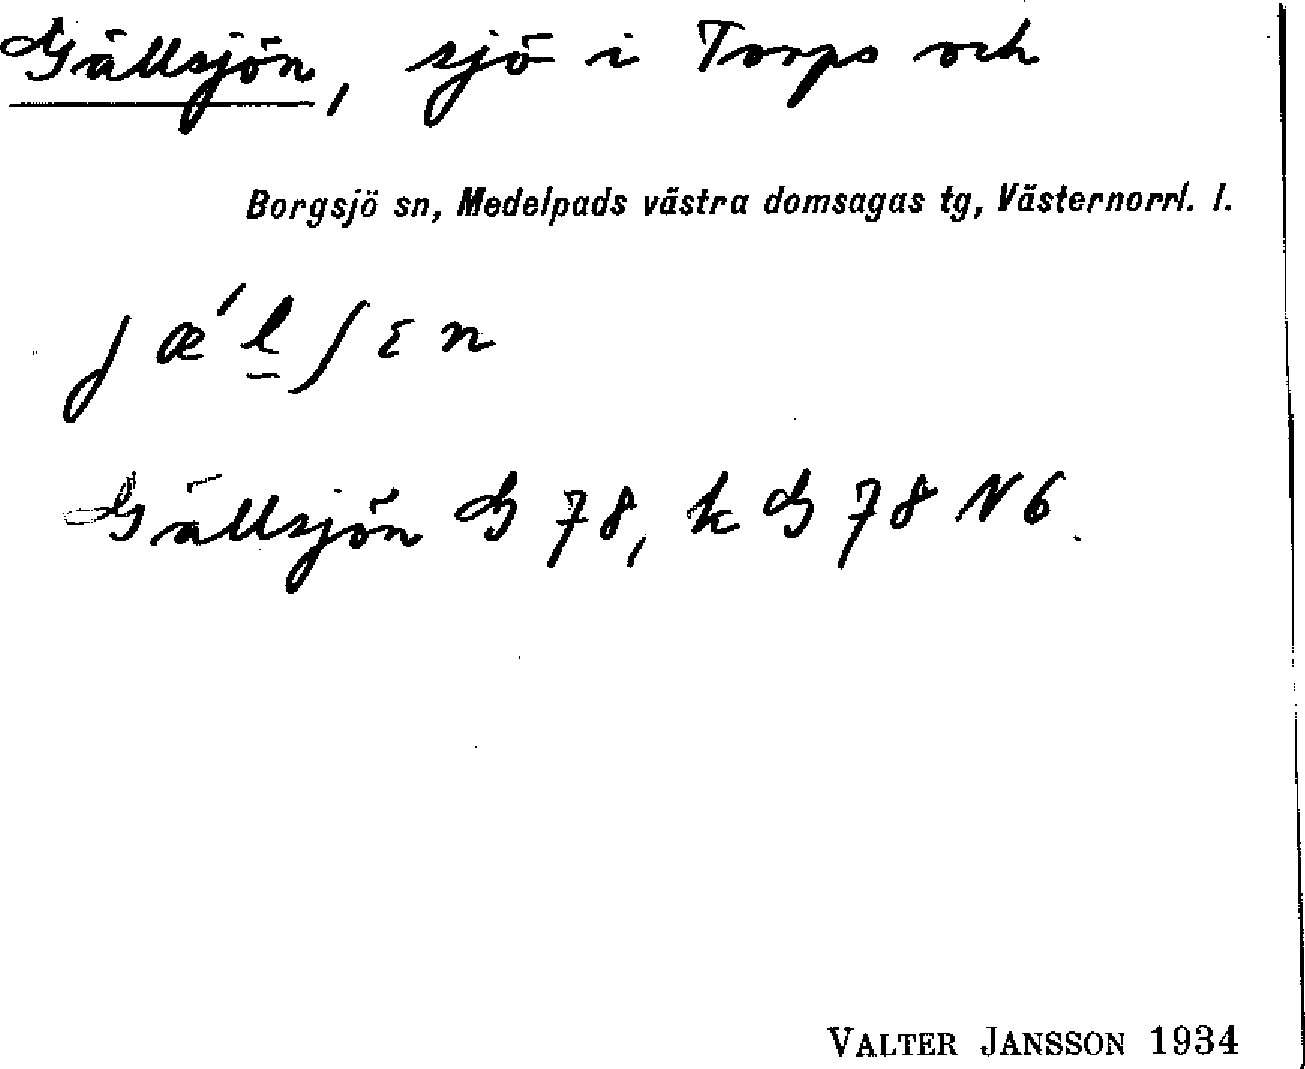 Gällsjön, sjö i Torps och
Borgsjö sn, Medelpads västra domsagas tg, Västernorrl. l.
jæ´l̲ʃɛn
Gällsjön G 78, k G 78 N 6.
VALTER JANSSON 1934